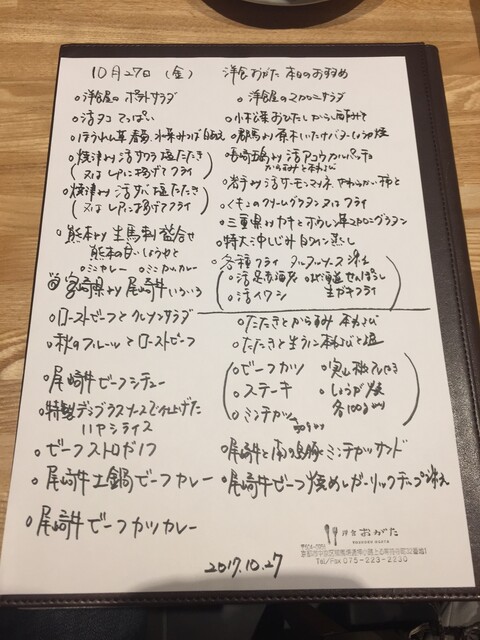 10月27日 (金) 洋食おがた 本日のおすすめ
○洋食屋のポテトサラダ
○活タコ てっぱい
○ほうれん草 春菊 水菜 みつば 白和え
○焼津より 活サワラ 塩たたき
(又は レアに揚げてフライ)
○焼津より 活サバ 塩たたき
(又は レアに揚げてフライ)
○熊本より 生馬刺 盛合せ
熊本の甘いしょうゆと
○ミニカレー ○ミニカツカレー
宮崎県より 尾崎牛いろいろ
○ローストビーフとクレソンサラダ
○秋のフルーツとローストビーフ
○尾崎牛ビーフシチュー
○特製デミグラスソースで仕上げた
ハヤシライス
○ビーフストロガノフ
○尾崎牛土鍋ビーフカレー
○尾崎牛ビーフカツカレー
○洋食屋のマカロニサラダ
○小松菜おひたし からし酢みそ
○群馬より 原木しいたけバターしょうゆ焼
○長崎五島より 活アコウカルパッチョ
からすみと本わさび
○岩手より 活サーモンマリネ やわらかい柿と
○くチェのクリームグラタン 又は フライ
○三重県よりカキとホウレン草マカロニグラタン
○特大はまぐり 白ワイン蒸し
○各種フライ タルタルソース添え
○活足赤海老 ○北海道せんぼうし
○活イワシ 生ガキフライ
○たたきとからすみ 本わさび
○たたきと生うに 本わさびと塩
○ビーフカツ ○実山椒アヒージョ
○ステーキ ○しょうが焼
○ミンチカツ 各100gより
○尾崎牛と南の島豚ミンチカツサンド
○尾崎牛ビーフ焼めし ガーリックチップ添え
洋食 おがた
Tel/Fax 075-223-2230
2017.10.27